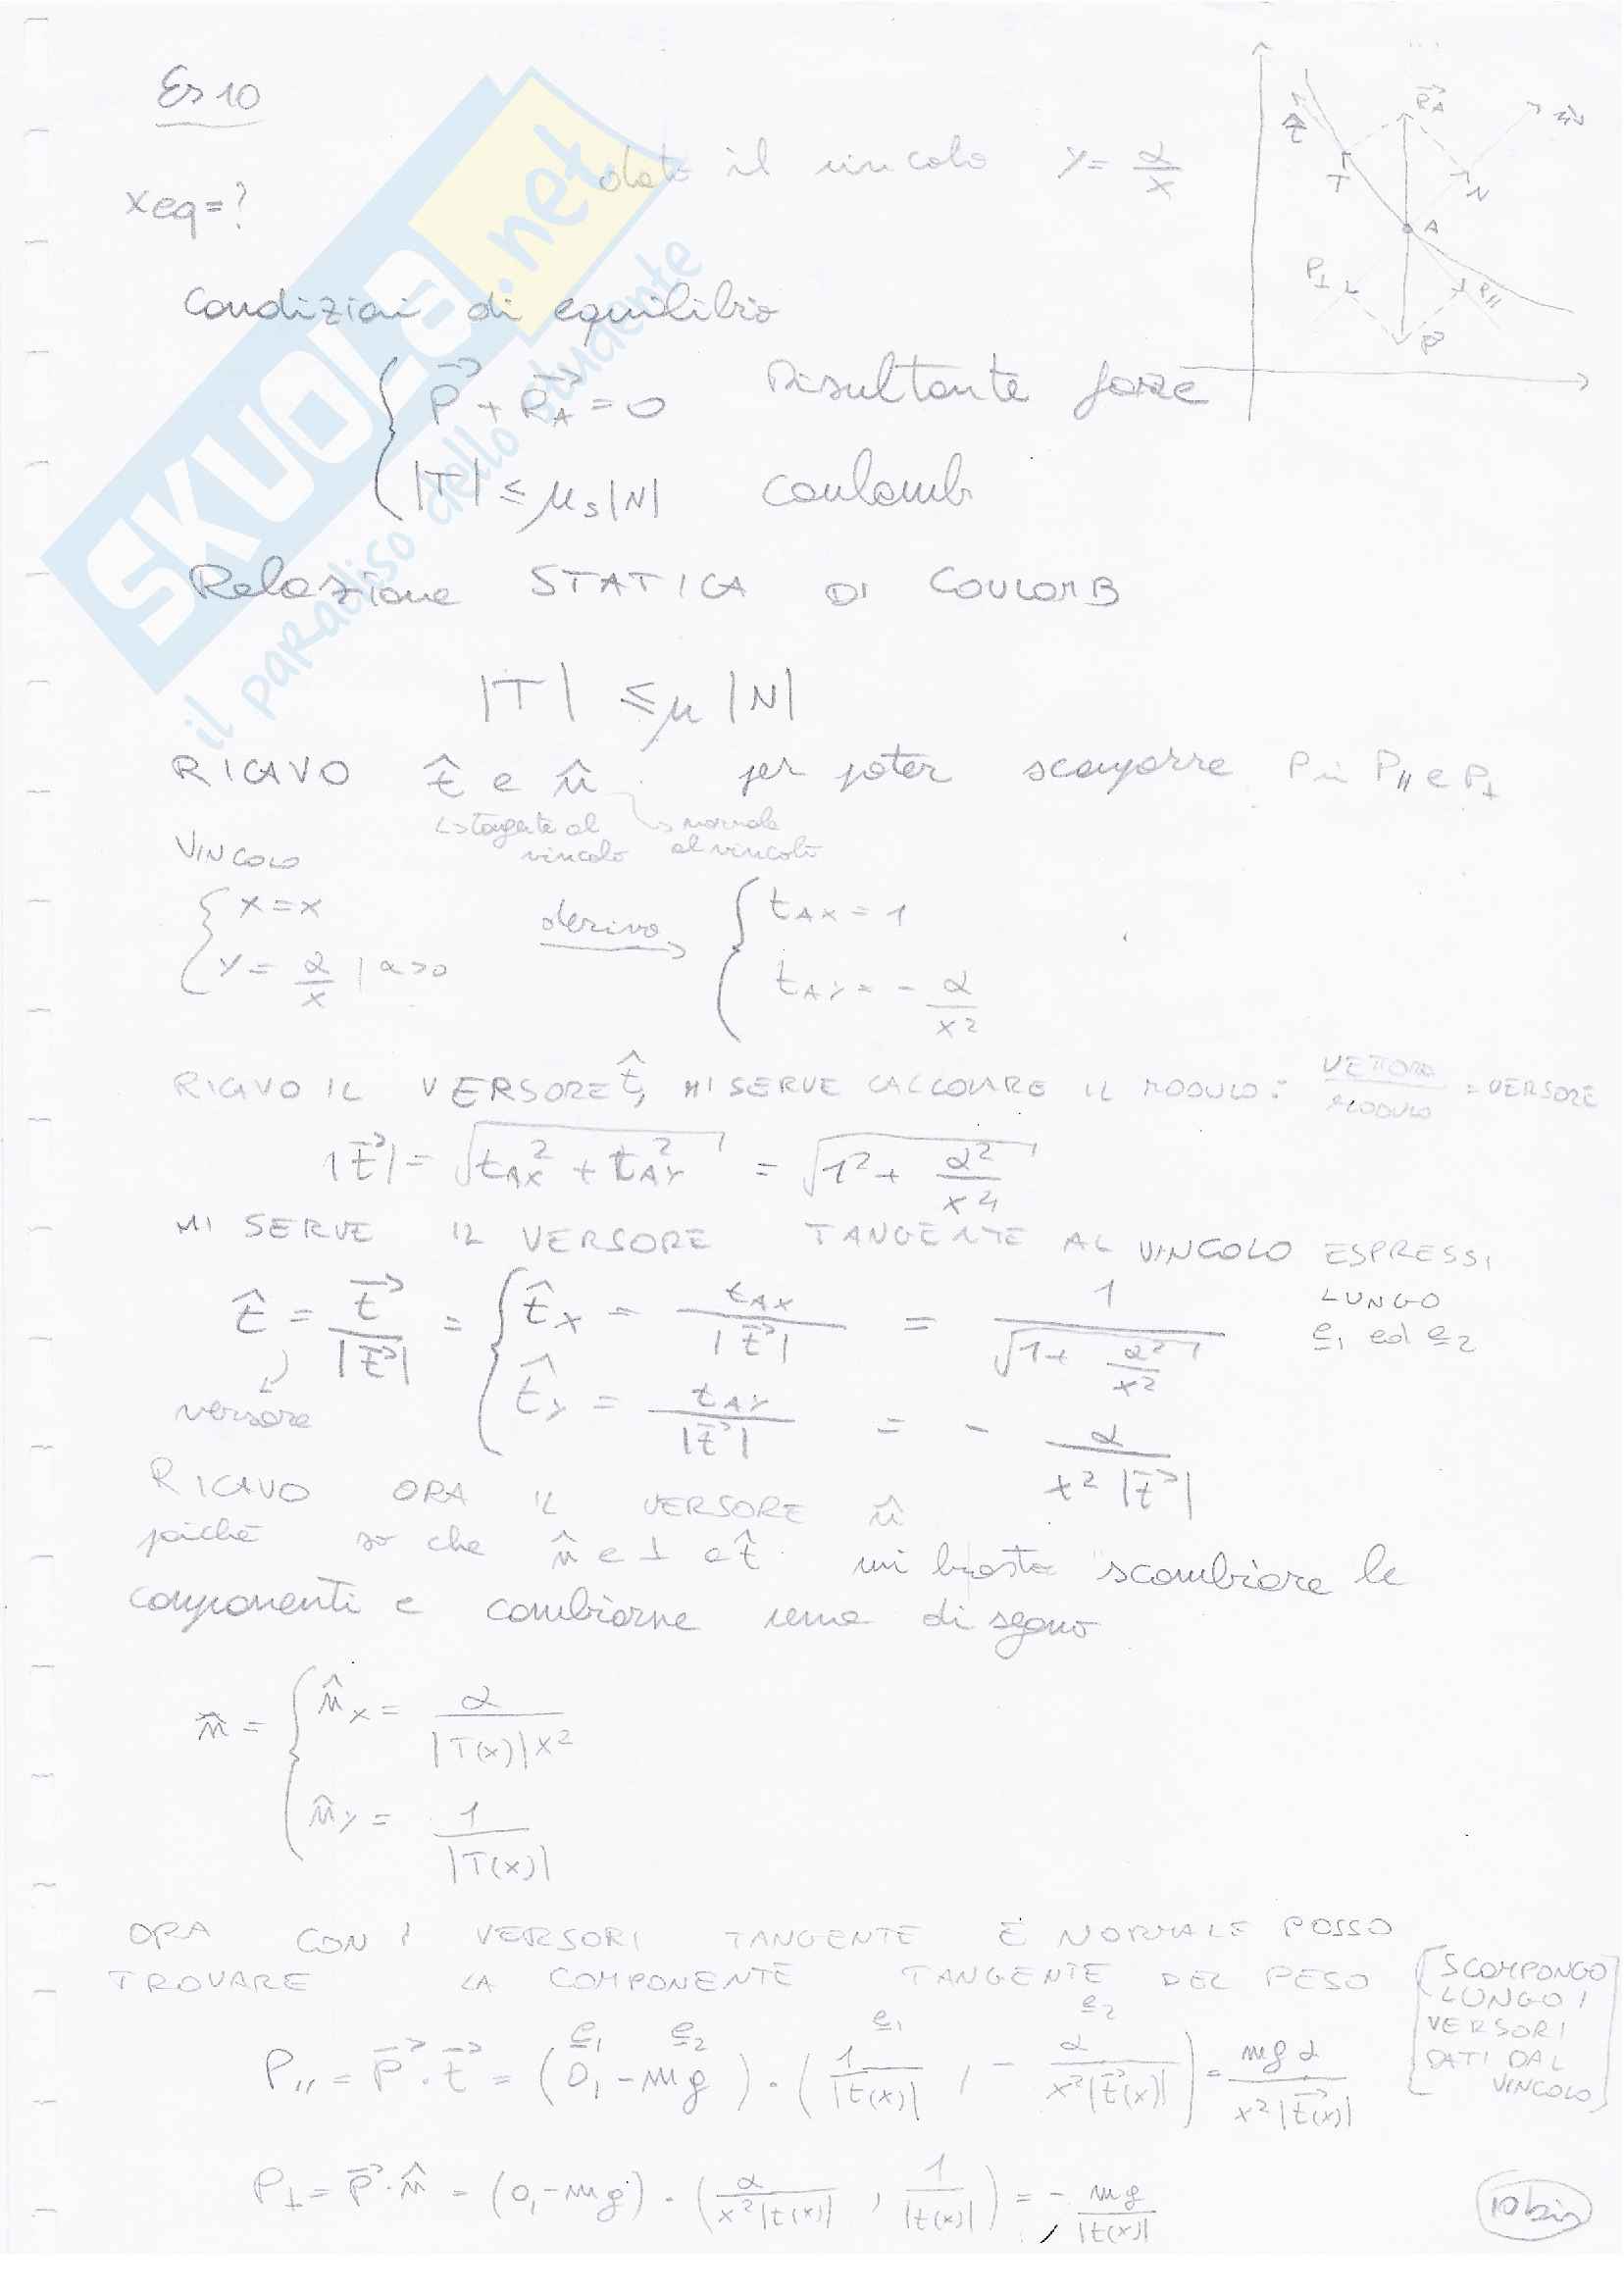 Es 10
dato il vincolo y = α/x
xeq = ?
t̂
R⃗A
n̂
T
N
A
P⊥
P//
P⃗
Condizioni di equilibrio
{ P⃗ + R⃗A = 0 Risultante forze
|T| ≤ μs|N| Coulomb
Relazione STATICA DI COULOMB
|T| ≤ μ |N|
RICAVO t̂ e n̂ per poter scomporre P in P// e P⊥
↳ tangente al vincolo
↳ normale al vincolo
VINCOLO
{ x = x
y = α/x | α>0
derivo →
{ tAX = 1
tAY = - α/x²
RICAVO IL VERSORE t̂, MI SERVE CALCOLARE IL MODULO: VETTORE/MODULO = VERSORE
|t⃗| = √(tAX² + tAY²) = √(1² + α²/x⁴)
MI SERVE IL VERSORE TANGENTE AL VINCOLO ESPRESSI
LUNGO
e1 ed e2
t̂ = t⃗/|t⃗| = { t̂x = tAX/|t⃗| = 1/√(1 + α²/x²)
t̂y = tAY/|t⃗| = - α/(x²|t⃗|)
versore
RICAVO ORA IL VERSORE n̂
poiché so che n̂ e ⊥ a t̂ mi basta scambiare le
componenti e cambiarne uno di segno
n̂ = { n̂x = α/(|T(x)|x²)
n̂y = 1/|T(x)|
ORA CON I VERSORI TANGENTE E NORMALE POSSO
TROVARE LA COMPONENTE TANGENTE DEL PESO
[SCOMPONGO
LUNGO I
VERSORI
DATI DAL
VINCOLO]
e1 e2 e1 e2
P// = P⃗ · t⃗ = (0, -mg) · (1/|t(x)|, - α/(x²|t⃗(x)|)) = mgα/(x²|t⃗(x)|)
P⊥ = P⃗ · n̂ = (0, -mg) · (α/(x²|t(x)|), 1/|t(x)|) = - mg/|t(x)|
10bis
SKUOLA.net
il paradiso dello studente